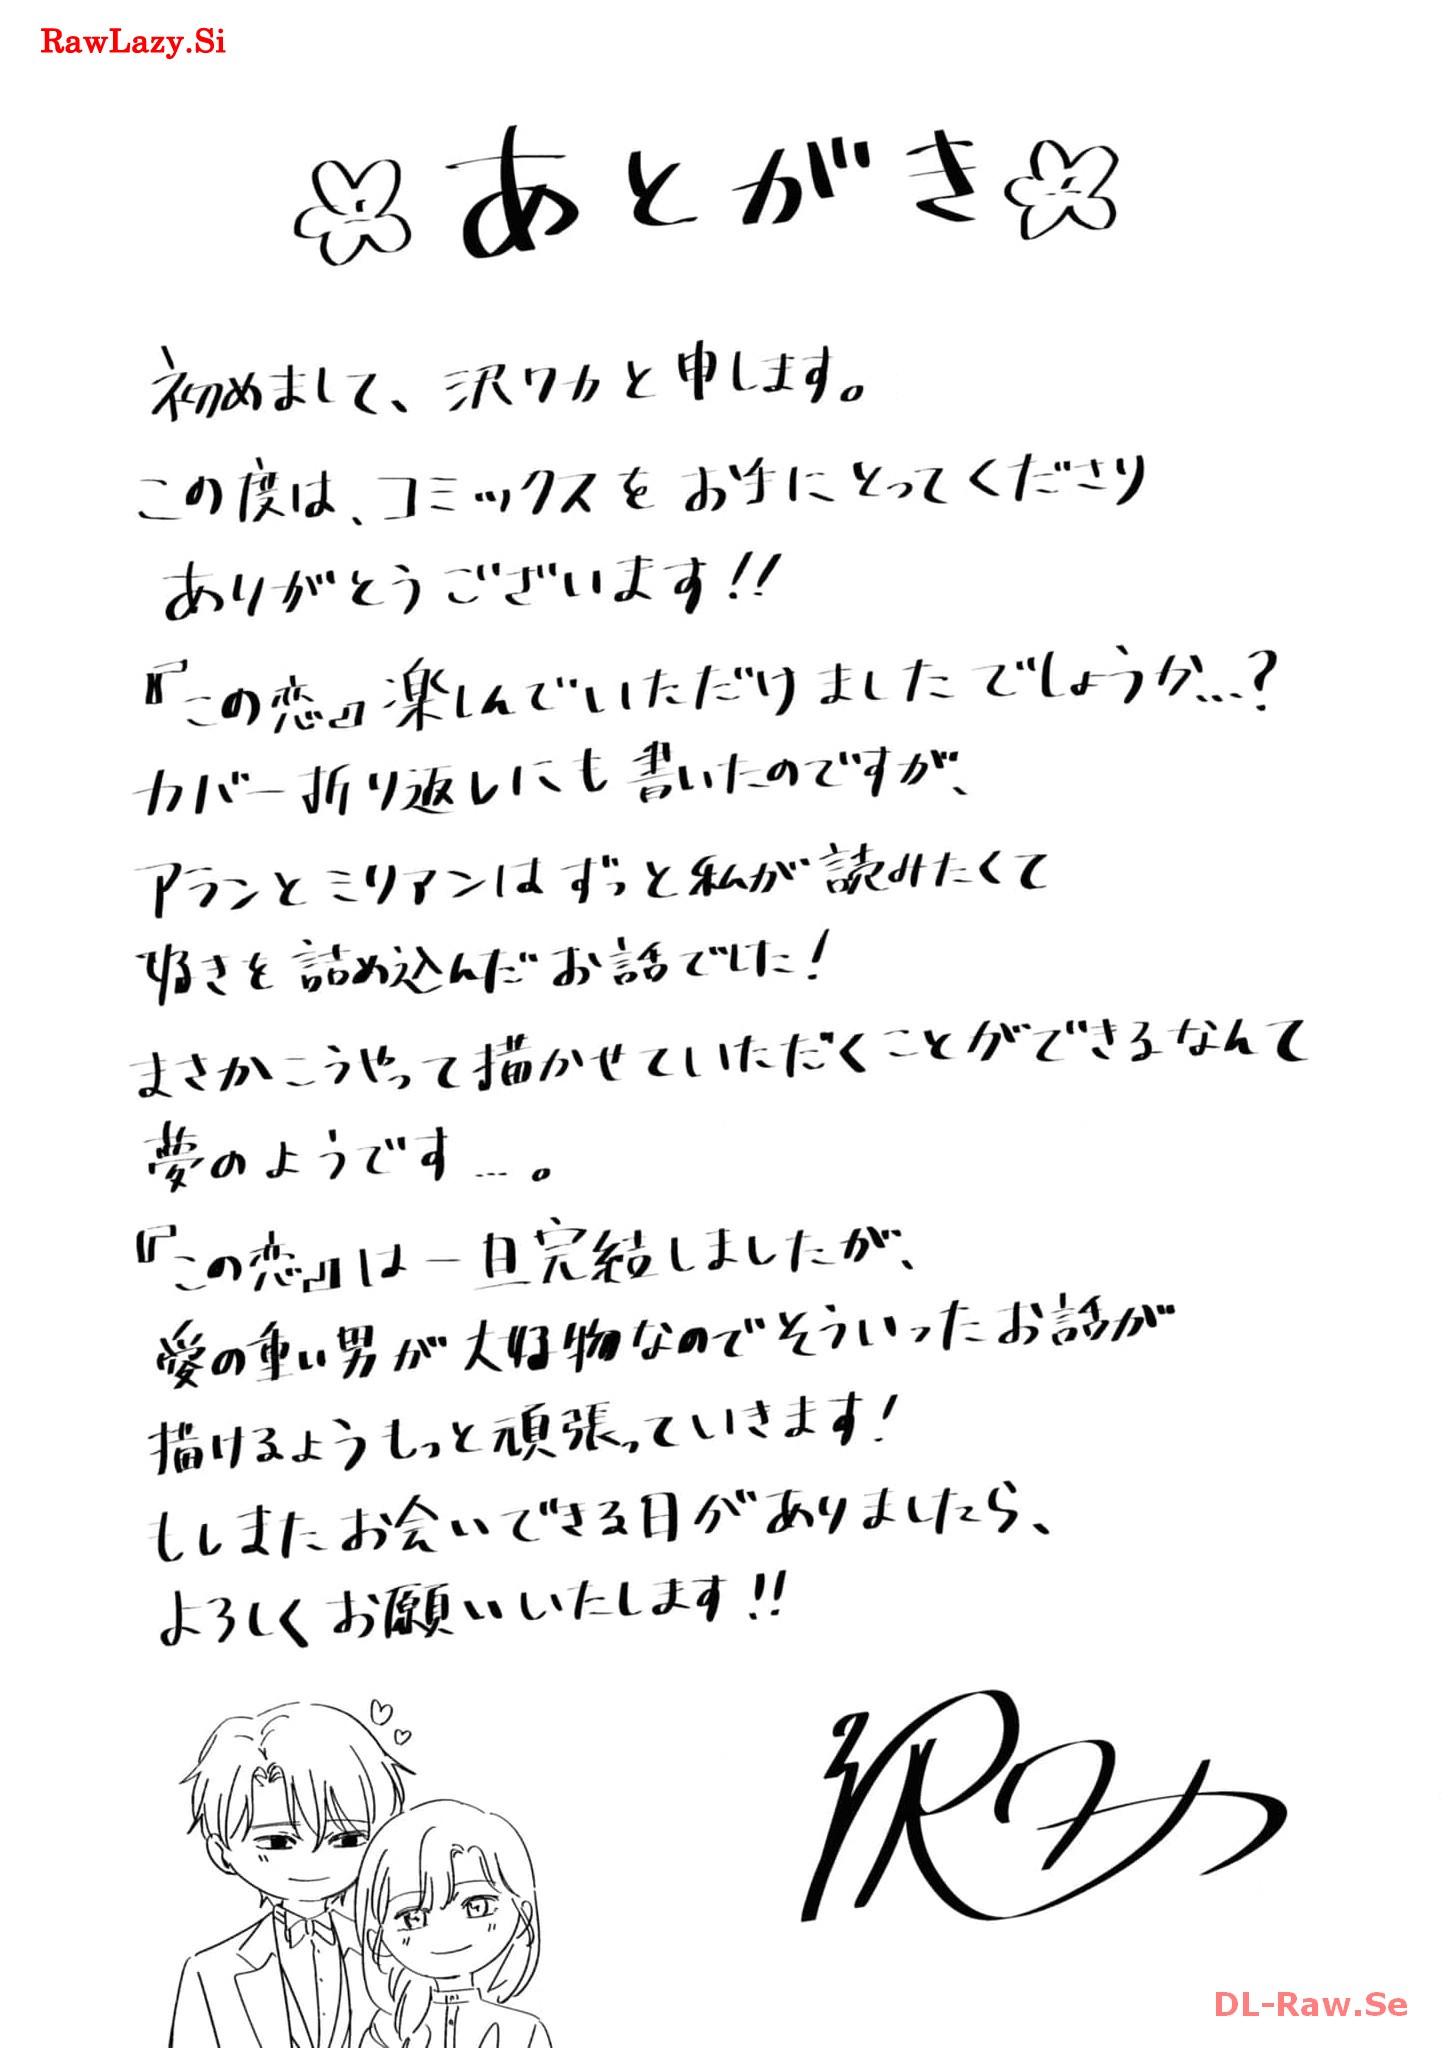 RawLazy.Si
あとがき
初めまして、沢ワカと申します。
この度は、コミックスをお手にとってくださり
ありがとうございます!!
『この恋』楽しんでいただけましたでしょうか…?
カバー折り返しにも書いたのですが、
アランとミリアンはずっと私が読みたくて
好きを詰め込んだお話でした!
まさかこうやって描かせていただくことができるなんて
夢のようです…。
『この恋』は一旦完結しましたが、
愛の重い男が大好物なのでそういったお話が
描けるようもっと頑張っていきます!
もしまたお会いできる日がありましたら、
よろしくお願いいたします!!
沢ワカ
DL-Raw.Se